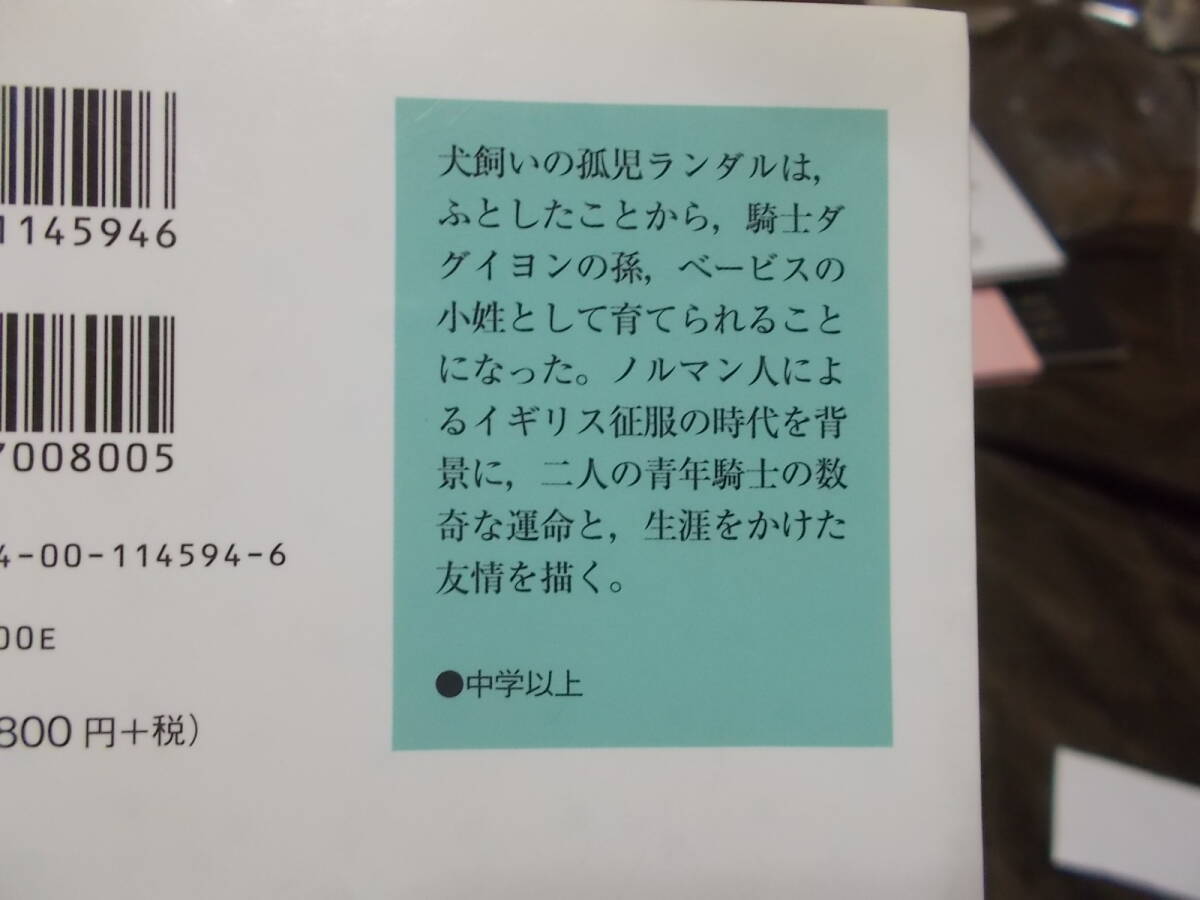 1145946
7008005
4-00-114594-6
00E
800円+税)
犬飼いの孤児ランダルは,
ふとしたことから,騎士ダ
グイヨンの孫,ベービスの
小姓として育てられること
になった。ノルマン人によ
るイギリス征服の時代を背
景に,二人の青年騎士の数
奇な運命と,生涯をかけた
友情を描く。
●中学以上